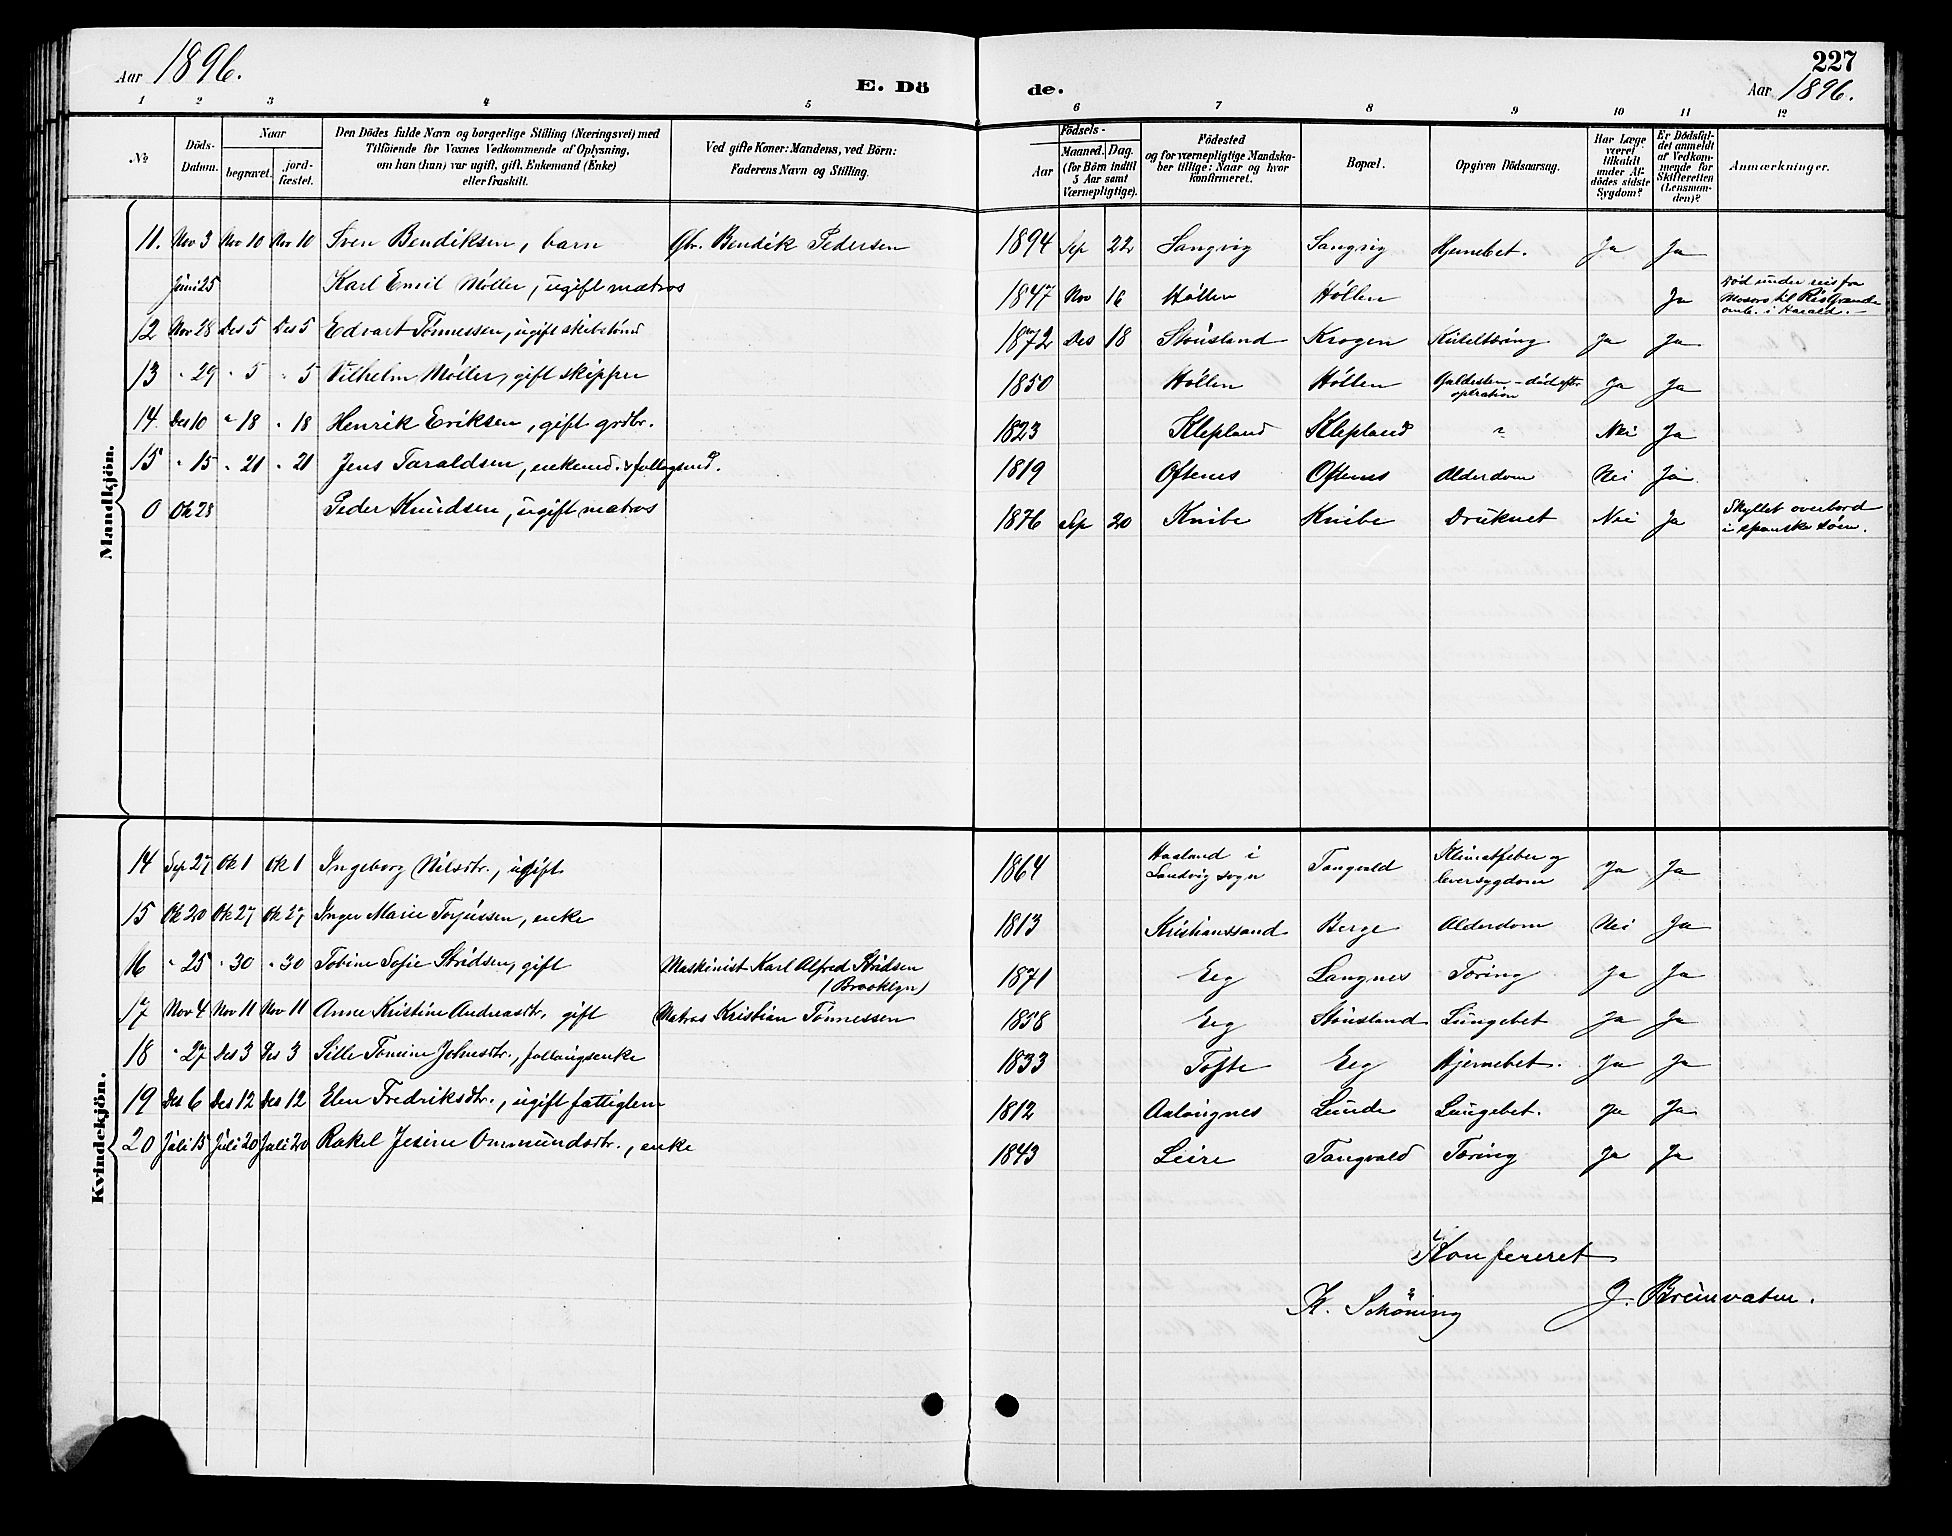 Aar 1896.
E. Dö
de.
227
Aar 1896.
1 2 3 4 5 6 7 8 9 10 11 12
№
Döds-Datum.
Naar
begravet.
jord-fæstet.
Den Dödes fulde Navn og borgerlige Stilling (Næringsvei) med
Tilföiende for Voxnes Vedkommende af Oplysning,
om han (hun) var ugift, gift, Enkemand (Enke)
eller fraskilt.
Ved gifte Koner: Mandens, ved Börn:
Faderens Navn og Stilling.
Födsels-
Aar
Maaned. Dag.
(for Börn indtil
5 Aar samt
Værnepligtige).
Födested
og for værnepligtige Mandska-
ber tillige: Naar og hvor
konfirmeret.
Bopæl.
Opgiven Dödsaarsag.
Har Læge
været
tilkaldt
under Af-
dödes sidste
Sygdom?
Er Dödsfal-
det anmeldt
af Vedkom-
mende for
Skifteretten
(Lensman-
den)?
Anmærkninger.
Mandkjön.
11. Nov 3 Nov 10 Nov 10 Sven Bendiksen, barn Gbr. Bendik Pedersen 1894 Sep 22 Sangvig Sangvig Hjernebet. Ja Ja
Juni 25 Karl Emil Møller, ugift matros 1847 Nov 16 Høllen Høllen Ja Død under reis fra
Mosoro til Rio Grande
omb. i Harald.
12 Nov 28 Des 5 Des 5 Edvart Tønnessen, ugift skibstømd 1872 Des 18 Stousland Krogen Kirteltæring Ja Ja
13 " 29 " 5 " 5 Vilhelm Møller, gift skipper 1850 Høllen Høllen Galdesten - død efter
operation Ja Ja
14. Des 10 " 18 " 18 Henrik Eriksen, gift grdbr. 1823 Klepland Klepland " Nei Ja
15 " 15 " 21 " 21 Jens Taraldsen, enkemd. & follogsmd. 1819 Oftenes Oftenes Alderdom Nei Ja
0 Ok 28 Peder Knudsen, ugift matros 1876 Sep 20 Knibe Knibe Druknet Nei Ja Skyllet overbord
i spanske søen.
Kvindekjön.
14 Sep 27 Ok 1 Ok 1 Ingeborg Nilsdtr., ugift 1864 Haaland i
Landvig sogn Tangvald Klimatfeber og
leversygdom Ja Ja
15 Ok 20 Ok 27 Ok 27 Inger Marie Torjussen, enke 1813 Kristianssand Berge Alderdom Nei Ja
16 " 25 " 30 " 30 Tobine Sofie Stridsen, gift Maskinist Karl Alfred Stridsen
(Brooklyn) 1871 Eeg Langnes Tæring Ja Ja
17 Nov 4 Nov 11 Nov 11 Anne Kristine Andreasdtr, gift Matros Kristian Tønnessen 1858 Eeg Stousland Lungebet Ja Ja
18 " 27 Des 3 Des 3 Sille Tomine Johnsdtr., follaugsenke 1833 Tofte Eeg Hjernebet. Ja Ja
19 Des 6 Des 12 Des 12 Elen Fredriksdtr., ugift fattiglem 1812 Aalougnes Lunde Lungebet. Ja Ja
20 Juli 15 Juli 20 Juli 20 Rakel Jesine Ommundsdtr., enke 1843 Leire Tangvald Tæring Ja Ja
Konfereret
K. Schöning J. Breiivatne.